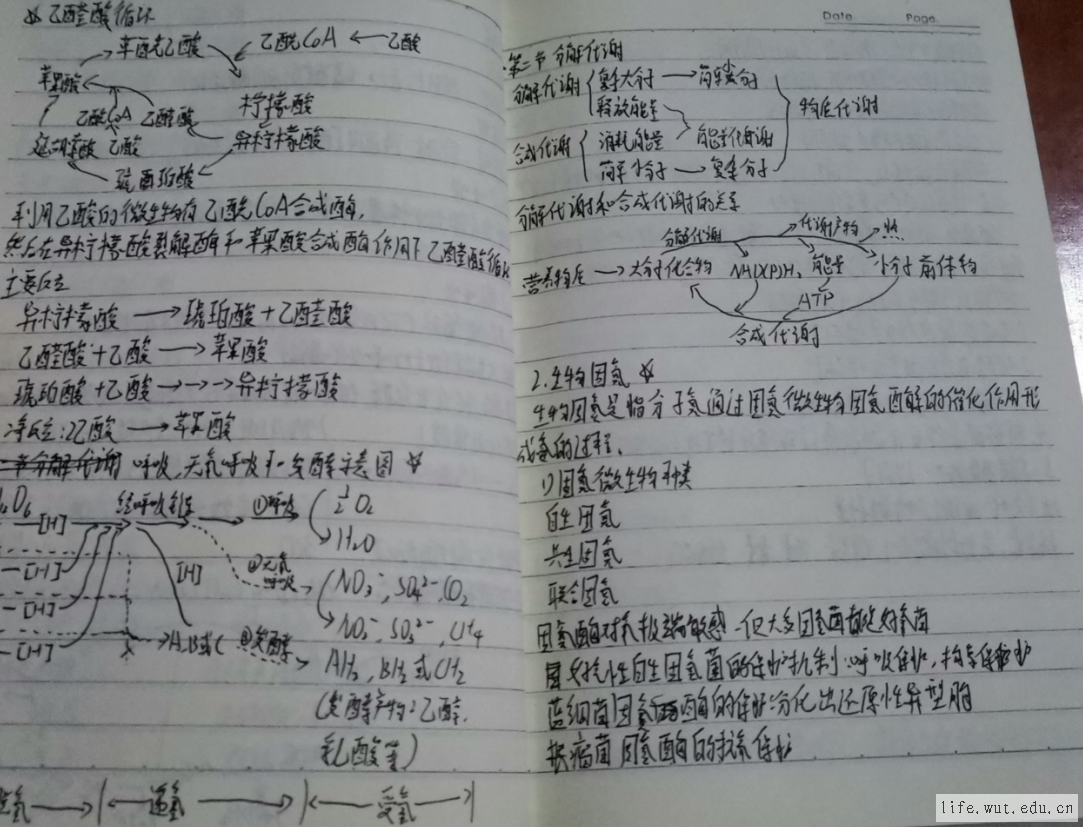 ☆ 乙醛酸循环
草酰乙酸 乙酰CoA ← 乙酸
苹果酸
柠檬酸
乙酰CoA 乙醛酸
延胡索酸 乙酸 异柠檬酸
琥珀酸
利用乙酸的微生物有乙酰CoA合成酶,
然后在异柠檬酸裂解酶和苹果酸合成酶作用下乙醛酸循环
主要反应
异柠檬酸 → 琥珀酸+乙醛酸
乙醛酸+乙酸 → 苹果酸
琥珀酸+乙酸 →→→ 异柠檬酸
净反应:2乙酸 → 苹果酸
呼吸,无氧呼吸和发酵示意图 ☆
经呼吸链 ①呼吸 ½O₂
[H]
H₂O
[H] [H] ②无氧呼吸 NO₃⁻, SO₄²⁻, CO₂
[H]
NO₂⁻, SO₃²⁻, CH₄
[H] A、B或C ③发酵 AH₂, BH₂或CH₂
(发酵产物:乙醇,
乳酸等)
递氢 受氢
Date Page
第二节 分解代谢
分解代谢 复杂大分子 → 简单小分子
释放能量 物质代谢
合成代谢 消耗能量 能量代谢
简单小分子 → 复杂分子
分解代谢和合成代谢的关系
分解代谢 代谢产物 热
营养物质 → 大分子化合物 NAD(P)H、能量 小分子前体物
ATP
合成代谢
2.生物固氮 ☆
生物固氮是指分子氮通过固氮微生物固氮酶的催化作用形
成氨的过程。
1)固氮微生物种类
自生固氮
共生固氮
联合固氮
固氮酶对氧极端敏感,但大多固氮菌都是好氧菌
好氧性自生固氮菌的保护机制:呼吸保护,构象保护
蓝细菌固氮酶的保护分化出还原性异型胞
根瘤菌固氮酶的抗氧保护
life.wut.edu.cn